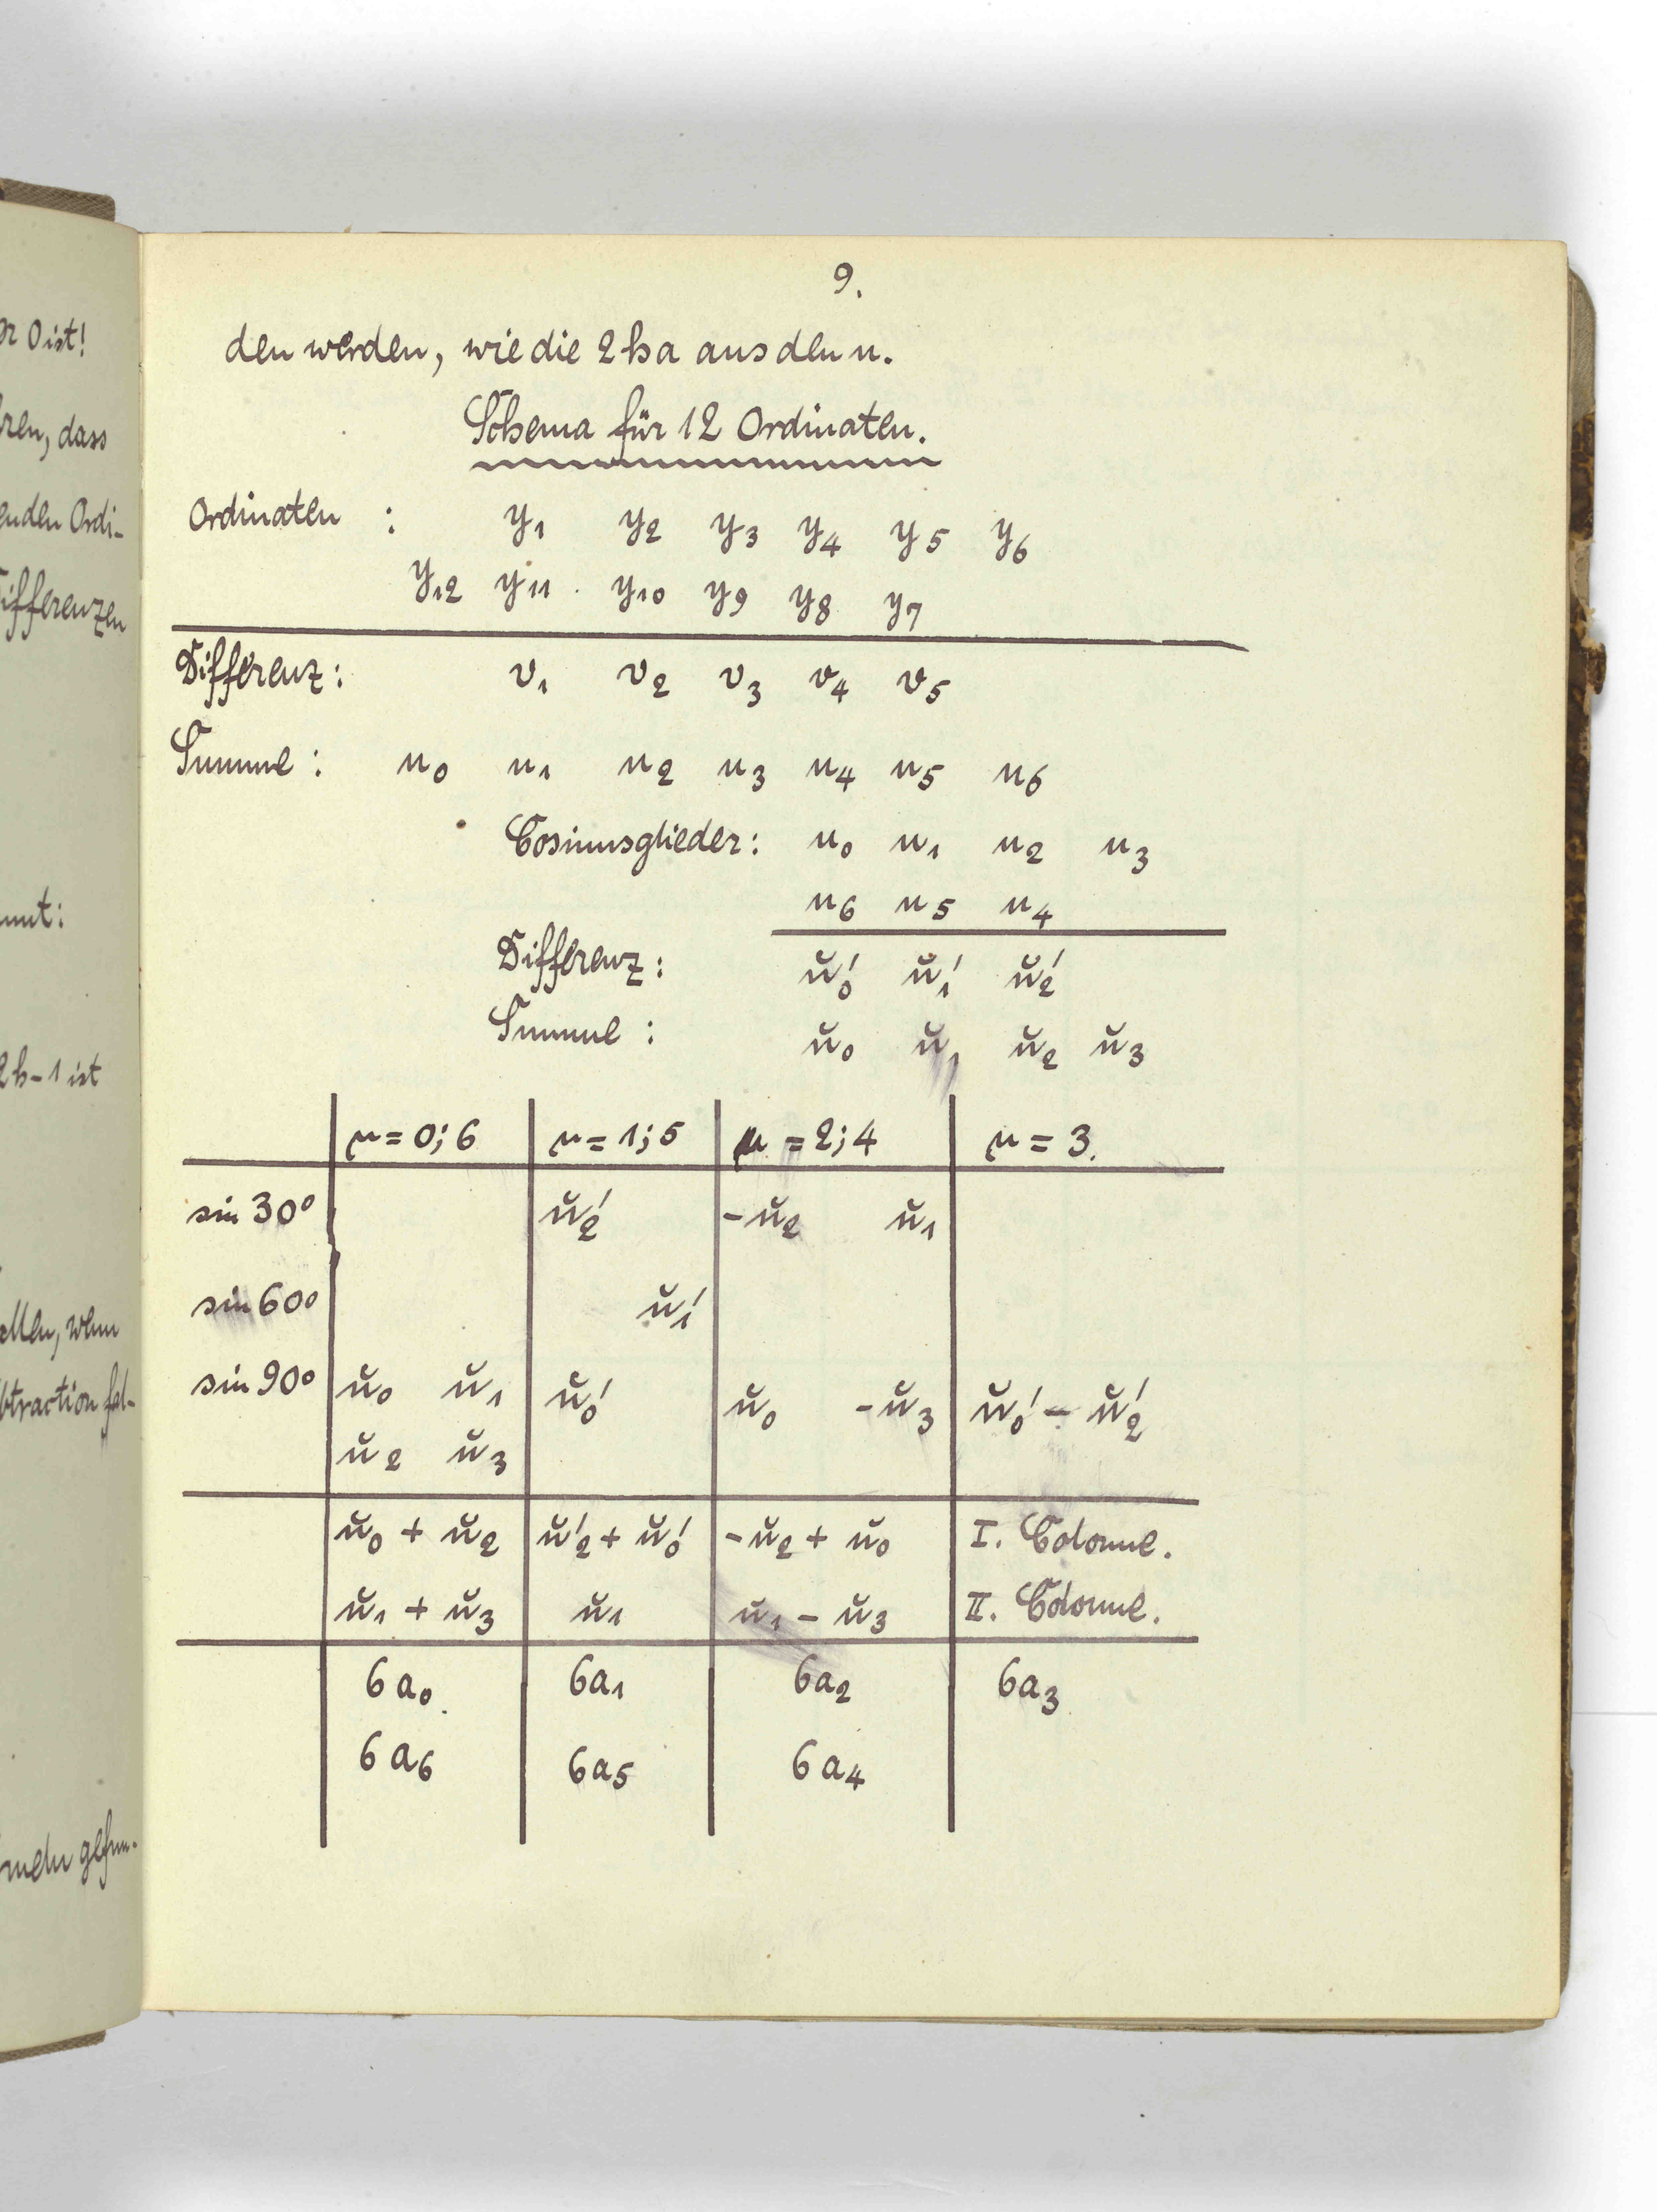 er 0 ist!
ren, dass
enden Ordi-
ifferenzen
mmt:
2h-1 ist
ellen, wenn
btraction fal-
meln gefun-
9.
den werden, wie die 2ha aus den u.
Schema für 12 Ordinaten.
Ordinaten : y₁ y₂ y₃ y₄ y₅ y₆
y₁₂ y₁₁ y₁₀ y₉ y₈ y₇
Differenz: v₁ v₂ v₃ v₄ v₅
Summe: u₀ u₁ u₂ u₃ u₄ u₅ u₆
Cosinusglieder: u₀ u₁ u₂ u₃
u₆ u₅ u₄
Differenz: ŭ₀′ ŭ₁′ ŭ₂′
Summe : ŭ₀ ŭ₁ ŭ₂ ŭ₃
μ=0;6 μ=1;5 μ=2;4 μ=3.
sin 30° ŭ₂′ -ŭ₂ ŭ₁
sin 60° ŭ₁′
sin 90° ŭ₀ ŭ₁ ŭ₀′ ŭ₀ -ŭ₃ ŭ₀′- ŭ₂′
ŭ₂ ŭ₃
ŭ₀ + ŭ₂ ŭ₂′+ ŭ₀′ -ŭ₂+ ŭ₀ I. Colonne.
ŭ₁ + ŭ₃ ŭ₁ ŭ₁ - ŭ₃ II. Colonne.
6a₀ 6a₁ 6a₂ 6a₃
6a₆ 6a₅ 6a₄